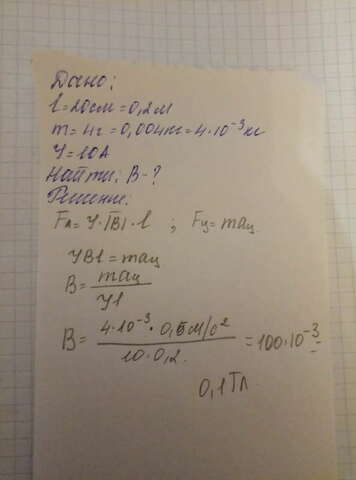 Дано:
l=20см=0,2м
m=4г=0,004кг=4·10⁻³кг
У=10А
Найти: B-?
Решение:
Fл=У·|B|·l ; Fц=maц
УBl=maц
B= maц / Уl
B= 4·10⁻³·0,5м/с² / 10·0,2. =100·10⁻³=
0,1Тл.